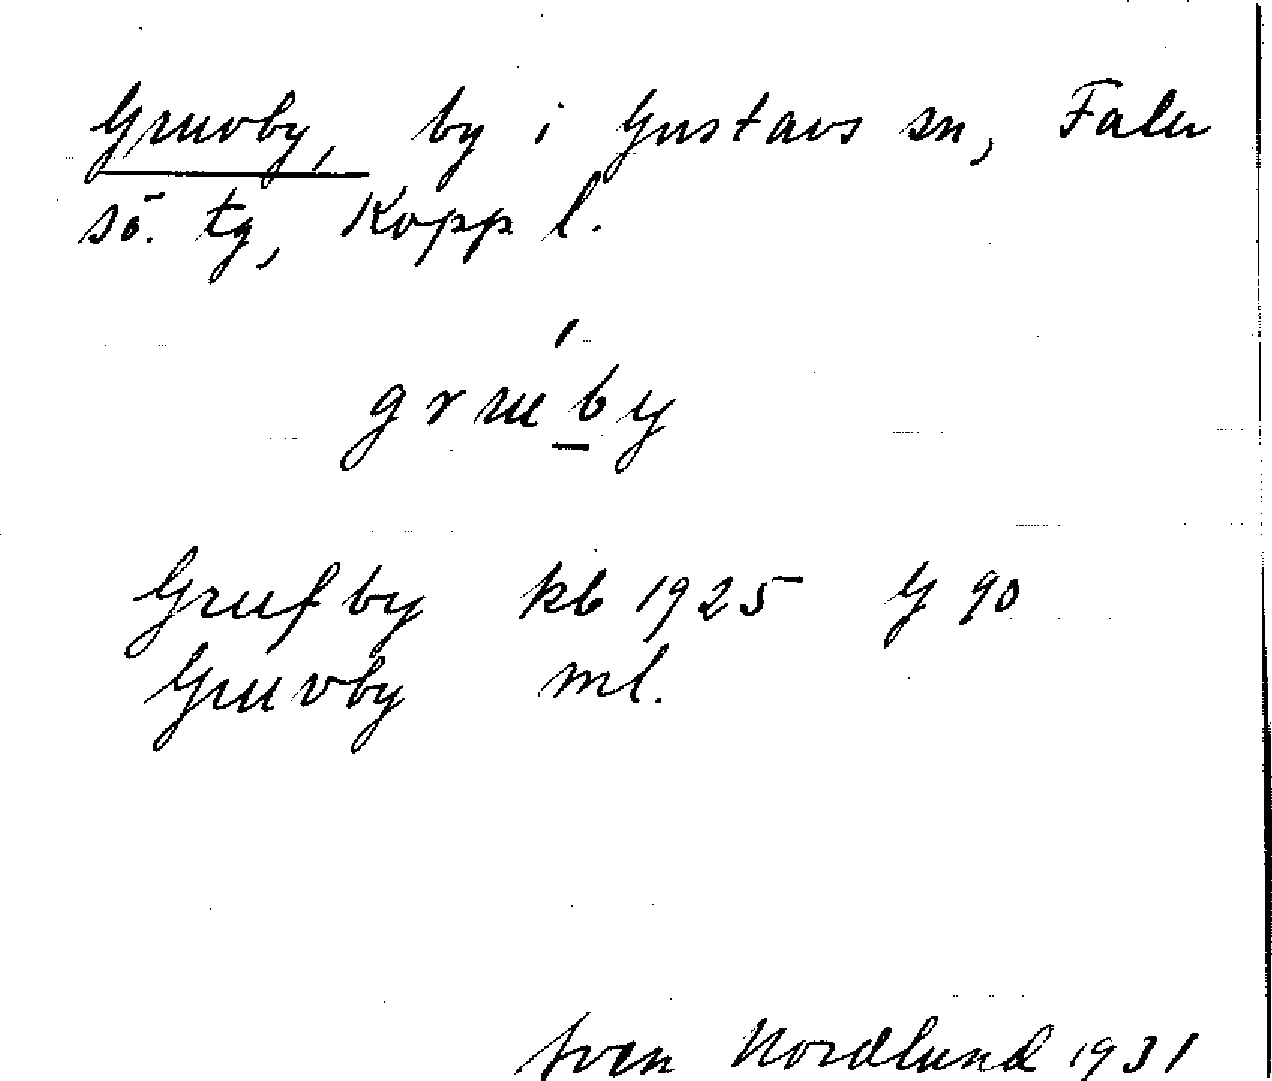 Gruvby, by i Gustavs sn, Falu
sö. tg, Kopp l.
gruby
Grufby kb 1925 G 90
Gruvby ml.
Sven Nordlund 1931